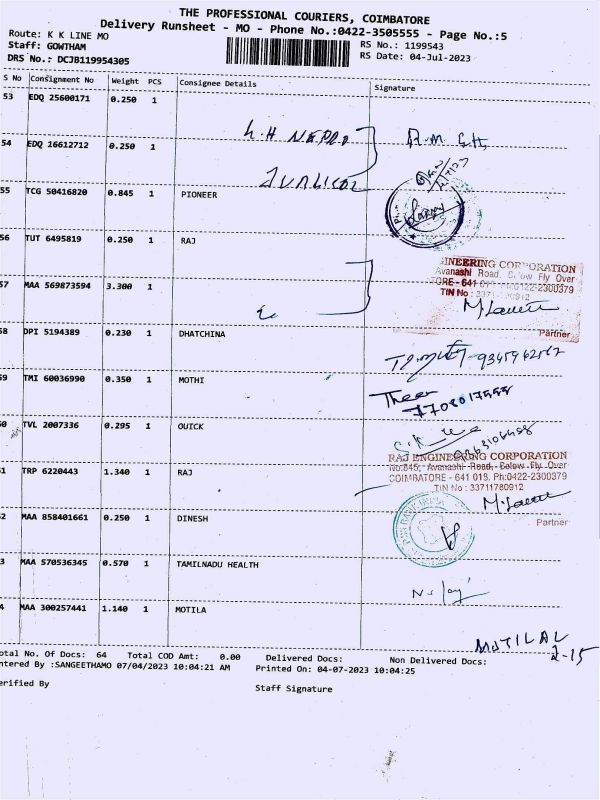 THE PROFESSIONAL COURIERS, COIMBATORE
Delivery Runsheet - MO - Phone No.:0422-3505555 - Page No.:5
Route: K K LINE MO
Staff: GOWTHAM
RS No.: 1199543
DRS No.: DCJB119954305
RS Date: 04-Jul-2023
S No Consignment No Weight PCS Consignee Details Signature
53 EDQ 25600171 0.250 1
54 EDQ 16612712 0.250 1
55 TCG 50416820 0.845 1 PIONEER
56 TUT 6495819 0.250 1 RAJ
GINEERING CORPORATION
Avanashi Road, Below Fly Over
TORE - 641 018 Ph:0422-2300379
TIN No : 33711780912
57 MAA 569873594 3.300 1
Partner
58 DPI 5194389 0.230 1 DHATCHINA
59 TMI 60036990 0.350 1 MOTHI
7708017558
60 TVL 2007336 0.295 1 OUICK
RAJ ENGINEERING CORPORATION
No.845, Avanashi Road, Below Fly Over
COIMBATORE - 641 018. Ph:0422-2300379
TIN No : 33711780912
61 TRP 6220443 1.340 1 RAJ
Partner
62 MAA 858401661 0.250 1 DINESH
63 MAA 570536345 0.570 1 TAMILNADU HEALTH
64 MAA 300257441 1.140 1 MOTILA
MOTILAL
2-15
otal No. Of Docs: 64 Total COD Amt: 0.00 Delivered Docs: Non Delivered Docs:
ntered By :SANGEETHAMO 07/04/2023 10:04:21 AM Printed On: 04-07-2023 10:04:25
erified By
Staff Signature